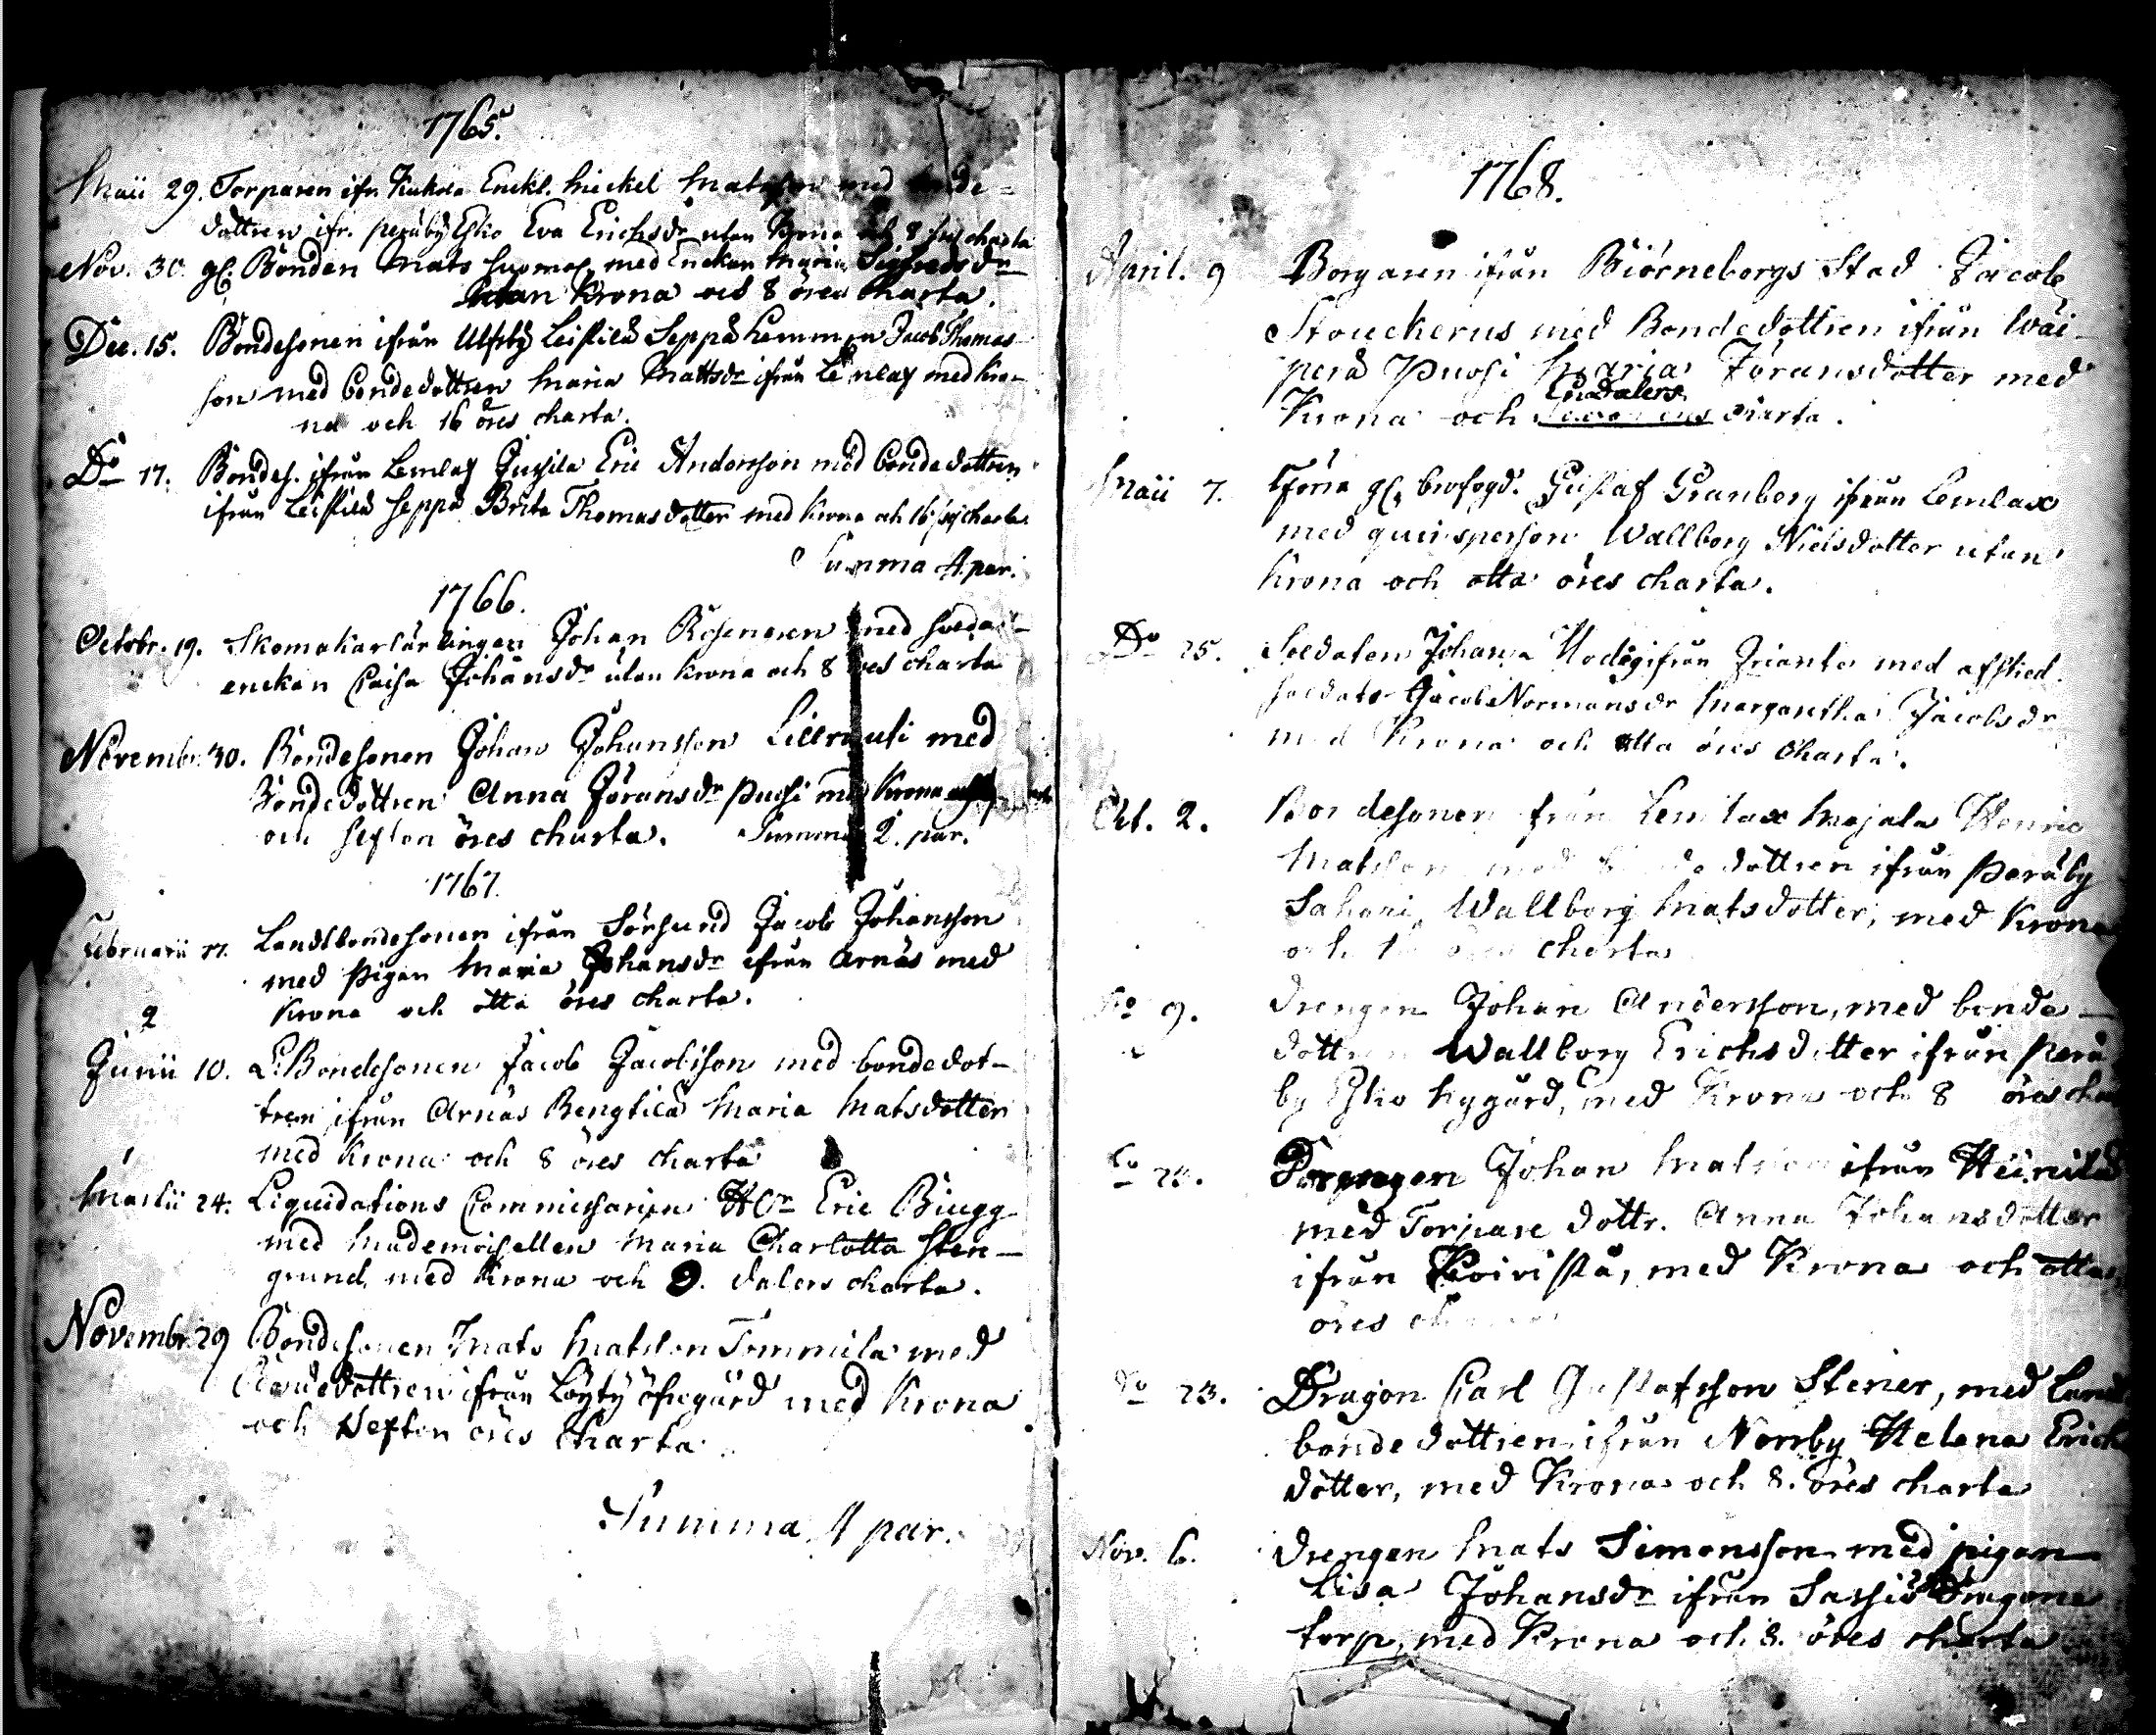 1765.
Maii 29. Torparen ifr. Kukola Enckl. Mickel Matsson med bonde-
dottren ifr. Peräby Esko Eva Erichsdr utan Krona och 8 öres charta
Nov. 30. gl. Bonden Mats med Enckan Maria Sigfredsdr
utan Krona och 8 öres Charta.
Dec. 15. Bondesonen ifrån Ulfsby Leistilä Seppä hemman Jacob Thomas-
son med bondedottren Maria Mattsdr ifrån Lemlax med Kro-
na och 16 öres charta.
Do 17. Bondes. ifrån Lemlax Jussila Eric Andersson med bondedottren
ifrån Leistilä Seppä Brita Thomasdotter med Krona och 16 öres charta
Summa 4 par.
1766.
Octobr. 19. Skomakarlärlingen Johan Rosengren med soldat-
enckan Caisa Johansdr utan krona och 8 öres charta
Novembr. 30. Bondesonen Johan Johansson Lillrausi med
Bondedottren Anna Göransdr Puosi med Krona
och sexton öres charta. Summa 2. par.
1767.
Februarii 17. Landbondesonen ifrån Sörsund Jacob Johansson
med Pigan Maria Johansdr ifrån Arnäs med
Krona och otta öres charta.
2
Junii 10. L. Bondesonen Jacob Jacobsson med bondedot-
tren ifrån Arnäs Bengtilä Maria Matsdotter
med Krona och 8 öres charta
1
Martii 24. Liquidations Commissarien HEr Eric Biugg
med Mademoisellen Maria Charlotta Sten-
grund, med Krona och 2. dalers charta.
Novembr. 29 Bondesonen Mats Matsson Tommila med
Bondedottren ifrån Löyty öfregård med Krona
och Sexton öres Charta.
Summa 4 par.
1768.
April. 9 Borgaren ifrån Biörneborgs Stad Jacob
Stouckerus med Bondedottren ifrån Wäi-
perä Puosi Maria Göransdotter med
En dalers
Krona och charta.
Maii 7. Förra gl. brofogd. Gustaf Granberg ifrån Lemlax
med quinsperson Wallborg Nielsdotter utan
krona och otta öres charta.
Do 25. Soldaten Johan Hodig ifrån Friante med afsked.
soldats Jacob Normans dr Margaretha Jacobsdr
med Krona och otta öres Charta.
Oct. 2. Bondesonen från Lemlax Majala Henric
Matsson med bondedottren ifrån Peräby
Sahari, Wallborg Matsdotter, med Krona
och öres charta
Do 9. Drengen Johan Andersson, med bonde-
dottren Wallborg Erichsdotter ifrån Perä
by Esko Nygård, med Krona och 8 öres cha
Do 23. Drengen Johan Matsson ifrån Heinilä
med Torpare dottr. Anna Johansdotter
ifrån Koivistå, med Krona och otta
öres charta
Do 23. Dragon Carl Gustafsson Stener, med Land
bondedottren ifrån Norrby Helena Erich
dotter, med Krona och 8. öres charta
Nov. 6. Drengen Mats Simonsson med pigan
Lisa Johansdr ifrån Sassis Dragone
torp, med Krona och 8. öres charta